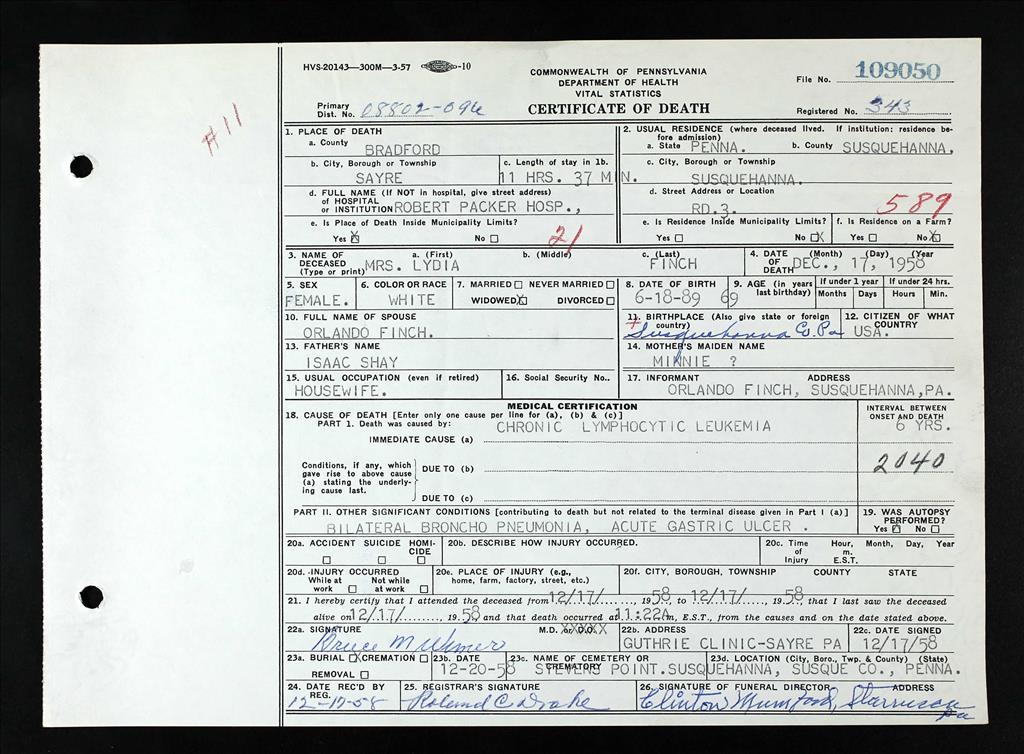 HVS-20143—300M—3-57 -10
COMMONWEALTH OF PENNSYLVANIA
DEPARTMENT OF HEALTH
VITAL STATISTICS
CERTIFICATE OF DEATH
File No. 109050
Primary Dist. No. 08802-096
Registered No. 343
#11
1. PLACE OF DEATH
a. County BRADFORD
b. City, Borough or Township SAYRE
c. Length of stay in 1b. 11 HRS. 37 MIN.
d. FULL NAME (If NOT in hospital, give street address)
OF HOSPITAL
or INSTITUTION ROBERT PACKER HOSP.,
e. Is Place of Death Inside Municipality Limits?
Yes X No
21
2. USUAL RESIDENCE (where deceased lived. If institution: residence before admission)
a. State PENNA. b. County SUSQUEHANNA.
c. City, Borough or Township
SUSQUEHANNA.
d. Street Address or Location
RD.3. 589
e. Is Residence Inside Municipality Limits? f. Is Residence on a Farm?
Yes No X Yes No X
3. NAME OF DECEASED (Type or print) a. (First) b. (Middle) c. (Last)
MRS. LYDIA FINCH
4. DATE OF DEATH (Month) (Day) (Year
DEC., 17, 1958
5. SEX FEMALE.
6. COLOR OR RACE WHITE
7. MARRIED NEVER MARRIED
WIDOWED X DIVORCED
8. DATE OF BIRTH 6-18-89
9. AGE (in years last birthday) 69
If under 1 year If under 24 hrs.
Months Days Hours Min.
10. FULL NAME OF SPOUSE
ORLANDO FINCH.
11. BIRTHPLACE (Also give state or foreign country)
Susquehanna Co. Pa
12. CITIZEN OF WHAT COUNTRY
USA.
13. FATHER'S NAME
ISAAC SHAY
14. MOTHER'S MAIDEN NAME
MINNIE ?
15. USUAL OCCUPATION (even if retired)
HOUSEWIFE.
16. Social Security No..
17. INFORMANT ADDRESS
ORLANDO FINCH, SUSQUEHANNA,PA.
MEDICAL CERTIFICATION
18. CAUSE OF DEATH [Enter only one cause per line for (a), (b) & (c)]
PART 1. Death was caused by: CHRONIC LYMPHOCYTIC LEUKEMIA
IMMEDIATE CAUSE (a)
INTERVAL BETWEEN ONSET AND DEATH
6 YRS.
2040
Conditions, if any, which gave rise to above cause (a) stating the underlying cause last.
DUE TO (b)
DUE TO (c)
PART II. OTHER SIGNIFICANT CONDITIONS [contributing to death but not related to the terminal disease given in Part I (a)]
BILATERAL BRONCHO PNEUMONIA, ACUTE GASTRIC ULCER .
19. WAS AUTOPSY PERFORMED?
Yes X No
20a. ACCIDENT SUICIDE HOMICIDE
20b. DESCRIBE HOW INJURY OCCURRED.
20c. Time of Injury Hour, Month, Day, Year
m.
E.S.T.
20d. INJURY OCCURRED
While at work Not while at work
20e. PLACE OF INJURY (e.g., home, farm, factory, street, etc.)
20f. CITY, BOROUGH, TOWNSHIP COUNTY STATE
21. I hereby certify that I attended the deceased from 12/17/, 1958 to 12/17/, 1958, that I last saw the deceased
alive on 12/17/, 1958 and that death occurred at 11:22A m, E.S.T., from the causes and on the date stated above.
22a. SIGNATURE M.D. or D.O.
22b. ADDRESS
GUTHRIE CLINIC-SAYRE PA
22c. DATE SIGNED
12/17/58
23a. BURIAL X CREMATION
REMOVAL
23b. DATE
12-20-58
23c. NAME OF CEMETERY OR CREMATORY
STEVENS POINT.
23d. LOCATION (City, Boro., Twp. & County) (State)
SUSQUEHANNA, SUSQUE CO., PENNA.
24. DATE REC'D BY REG.
12-17-58
25. REGISTRAR'S SIGNATURE
Roland C Drake
26. SIGNATURE OF FUNERAL DIRECTOR ADDRESS
Clinton Mumford, Starrucca
Pa